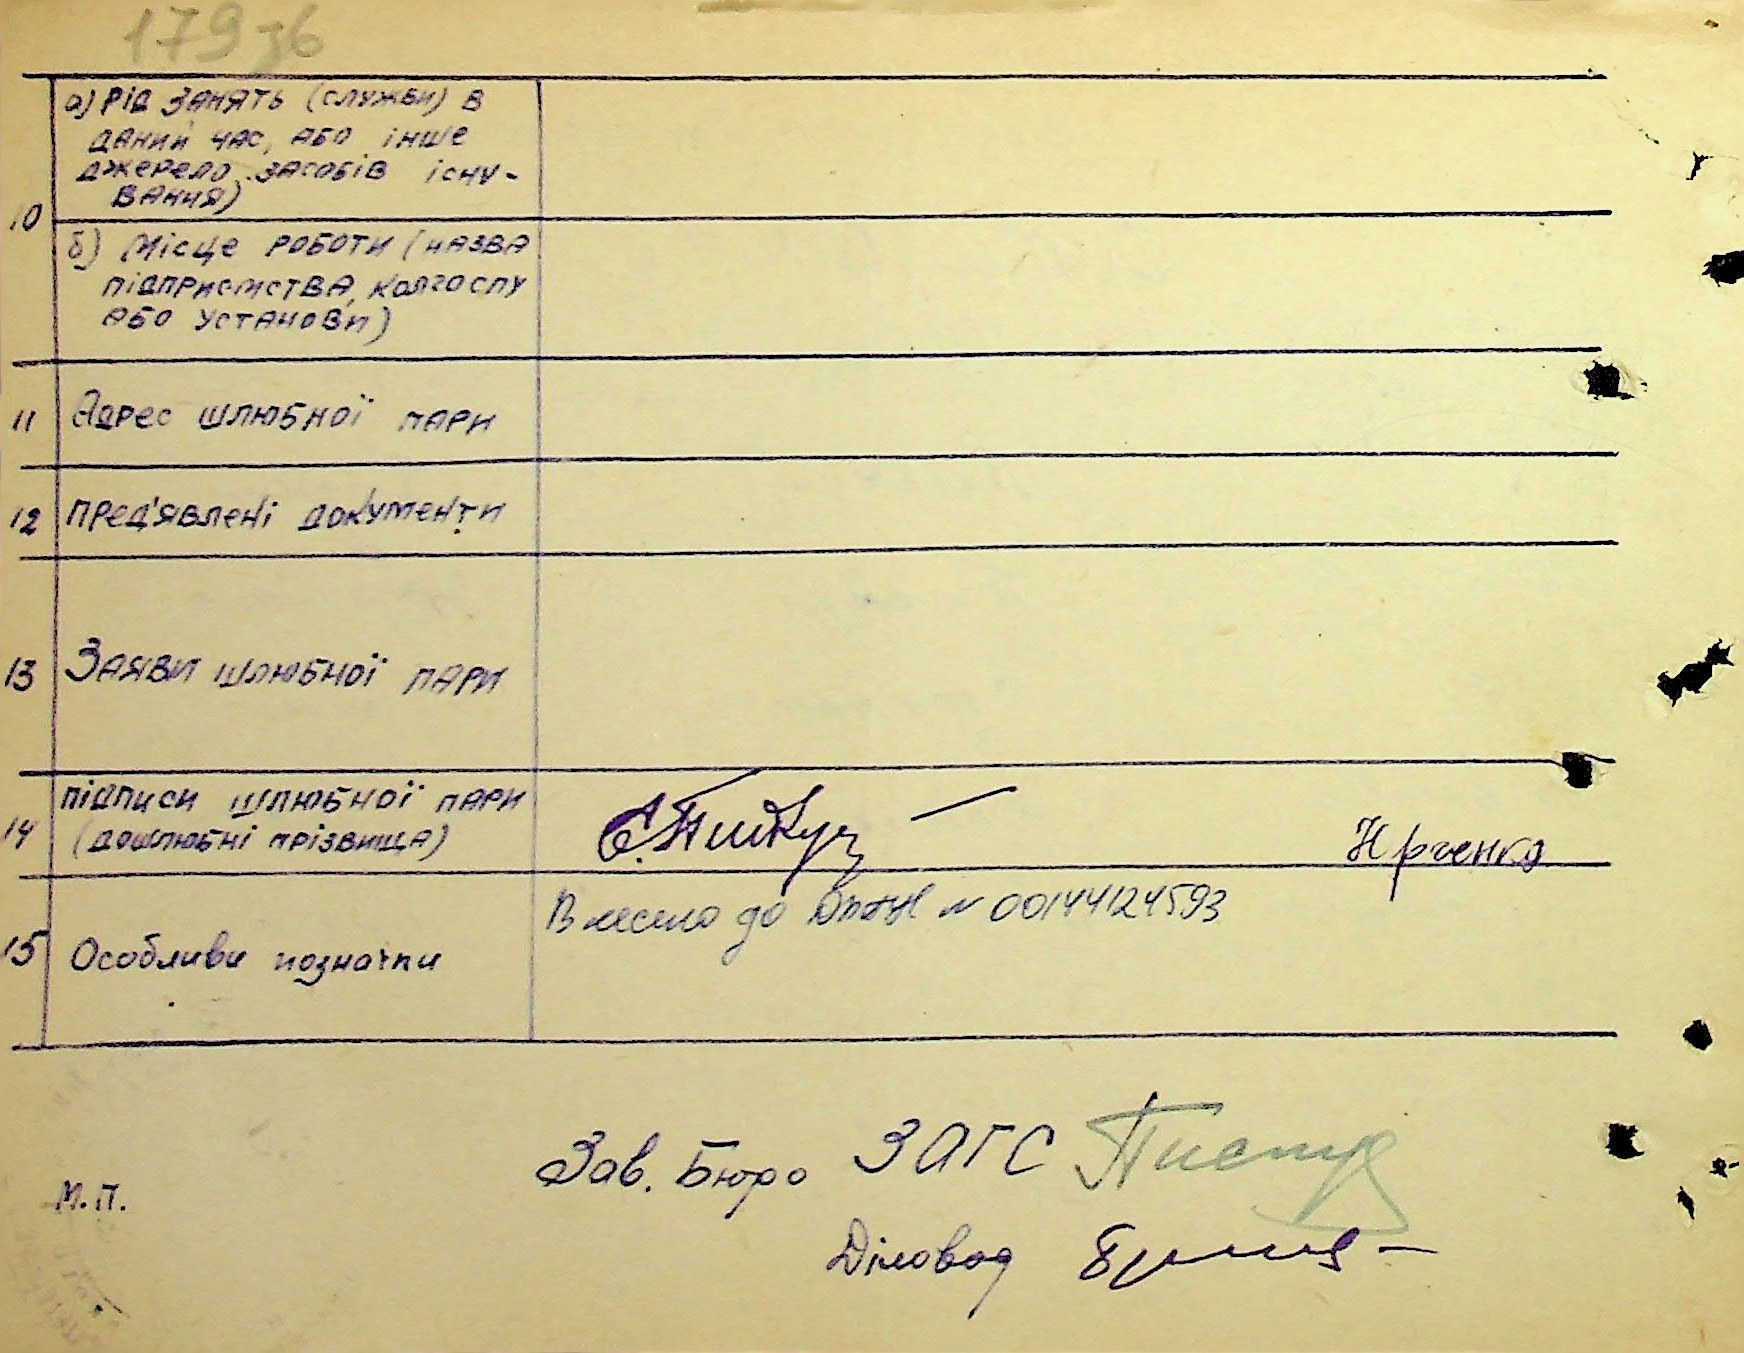 179 зв
а) Рід занять (служби) в
даний час, або інше
джерело засобів існу-
вання)
10
б) Місце роботи (назва
підприємства, колгоспу
або установи)
11 Адрес шлюбної пари
12 Пред'явлені документи
13 Заяви шлюбної пари
14 Підписи шлюбної пари
(дошлюбні прізвища)
Внесено до ДРАЦС № 00144124593
15 Особливи позначки
Зав. Бюро ЗАГС
М.П.
Діловод